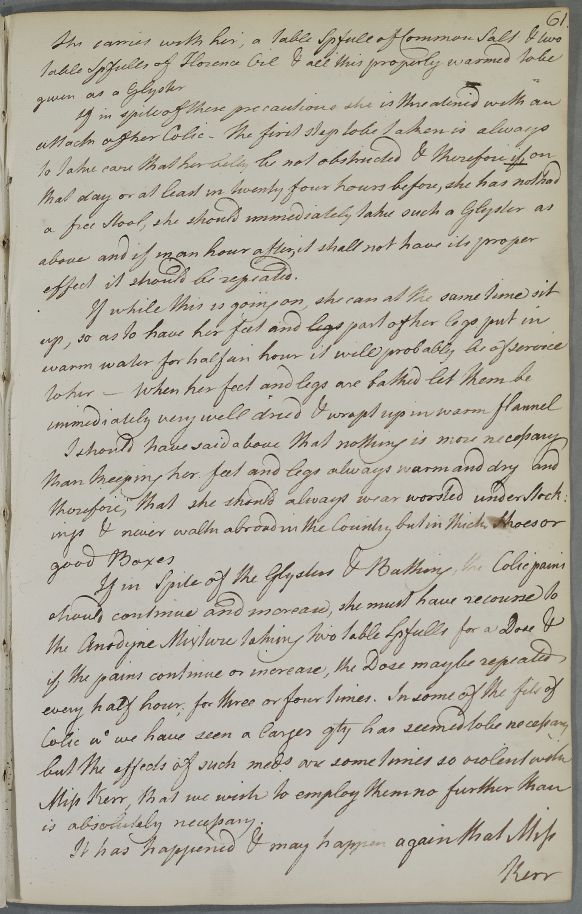 61
She carries with her, a table Spfulle of Common Salt & two
table Spfulls of Florence Oil & all this properly warmed to be
given as a Glyster
If in spite of these precautions she is threatened with an
attack of her Colic - The first step to be taken is always
to take care that her belly be not obstructed & therefore if on
that day or at least in twenty four hours before, she has not had
a free Stool, she should immediately take such a Glyster as
above and if in an hour after, it shall not have its proper
effect it should be repeated.
If while this is going on, she can at the same time sit
up, so as to have her feet and legs part of her legs put in
warm water for half an hour it will probably be of service
to her — When her feet and legs are bathed let them be
immediately very well dried & wrapt up in warm flannel
I should have said above that nothing is more necessary
than keeping her feet and legs always warm and dry and
therefore, that she should always wear worsted under Stock:
ings & never walk abroad in the Country but in thick Shoes or
good Boxes
If in Spite of the Glysters & Bathing, the Colic pains
should continue and increase, she must have recourse to
the Anodyne Mixture taking two table Spfulls for a Dose &
if the pains continue or increase, the Dose may be repeated
every half hour, for three or four times. In some of the fits of
Colic wc we have seen a larger qty has seemed to be necessary
but the effects of such meds are sometimes so violent with
Miss Kerr, that we wish to employ them no further than
is absolutely necessary.
It has happened & may happen again that Miss
Kerr